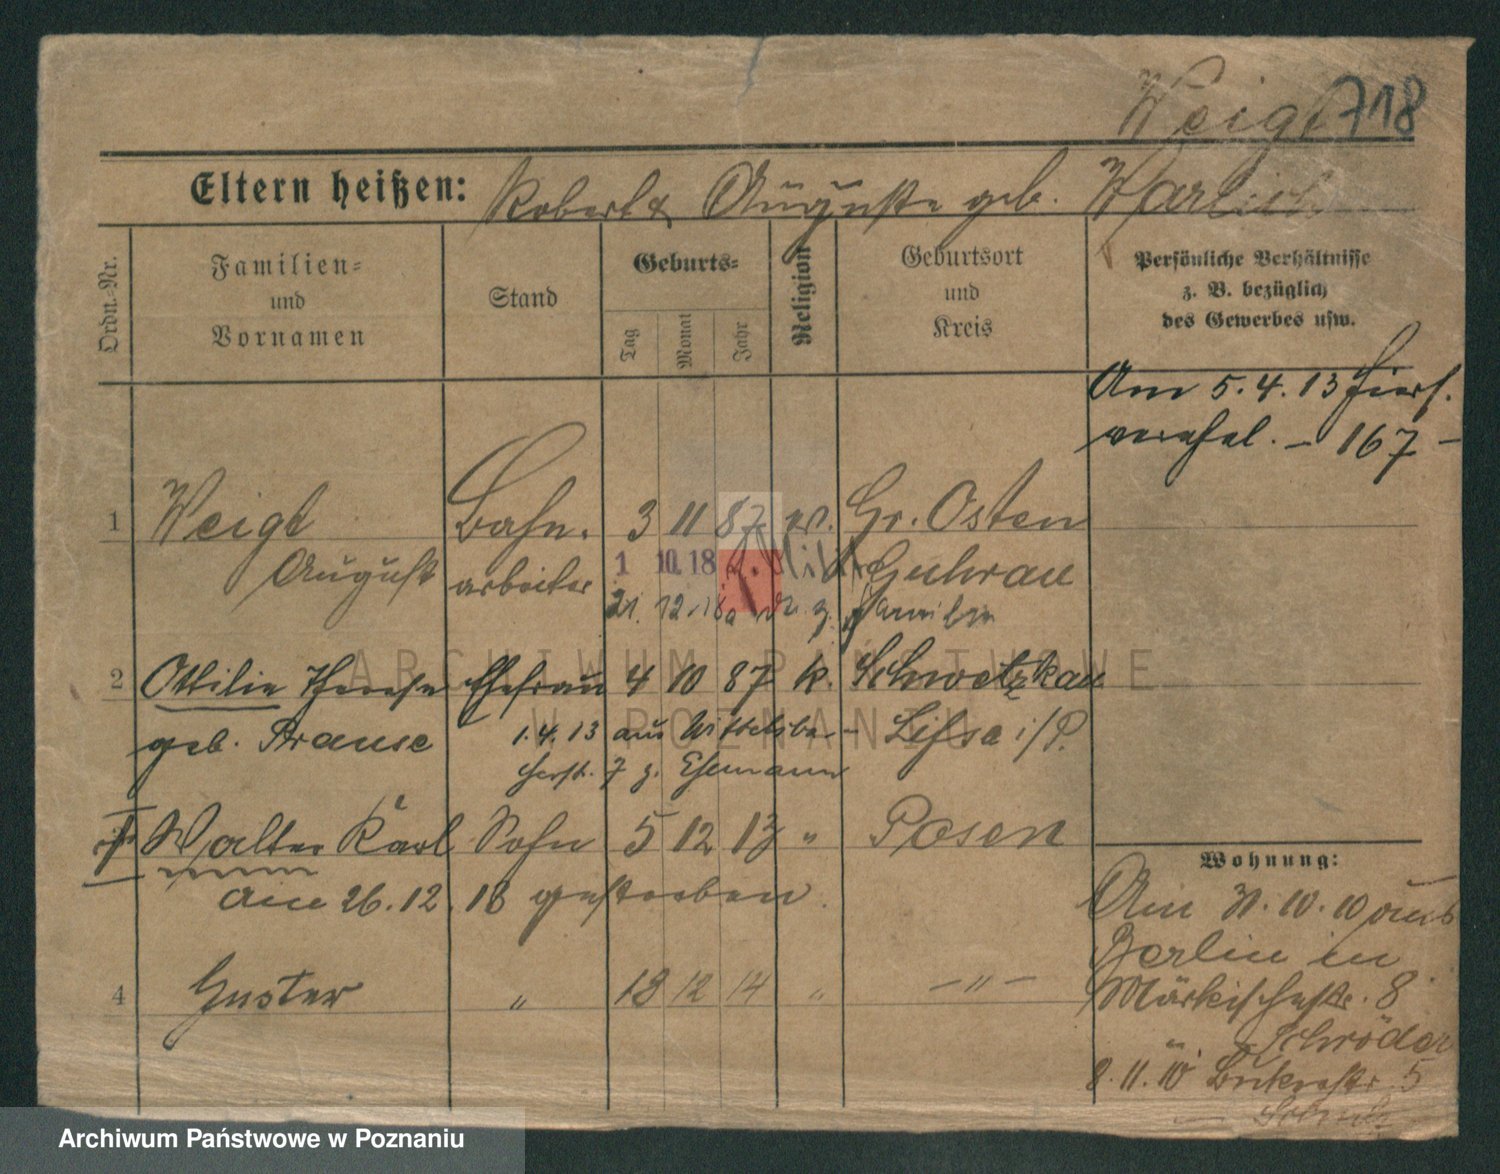 Weigt 718
Eltern heißen: Robert & Auguste geb.
Ordn.-Nr.
Familien-
und
Vornamen
Stand
Geburts-
Tag
Monat
Jahr
Religion
Geburtsort
und
Kreis
Persönliche Verhältnisse
z. B. bezüglich
des Gewerbes usw.
Am 5.4.13 hiers.
verehel. – 167 –
1 Weigt Bahn- 3 11 87 ev. Gr. Osten
August arbeiter 1 10.18 z. Milit. Guhrau
21. 12. 18 z. Familie
2 Ottilie Therese Ehefrau 4 10 87 k. Schwetzkau
geb. Krause 1.4.13 aus Lissa i/P.
7 z. Ehemann
† Walter Karl Sohn 5 12 13 " Posen
am 26.12.18 gestorben.
4 Gustav " 13 12 14 " – " –
Wohnung:
Am 31.10.10 aus
Berlin in
Märkischestr. 8
Schröder
8.11.10 5
ARCHIWUM PAŃSTWOWE
W POZNANIU
Archiwum Państwowe w Poznaniu